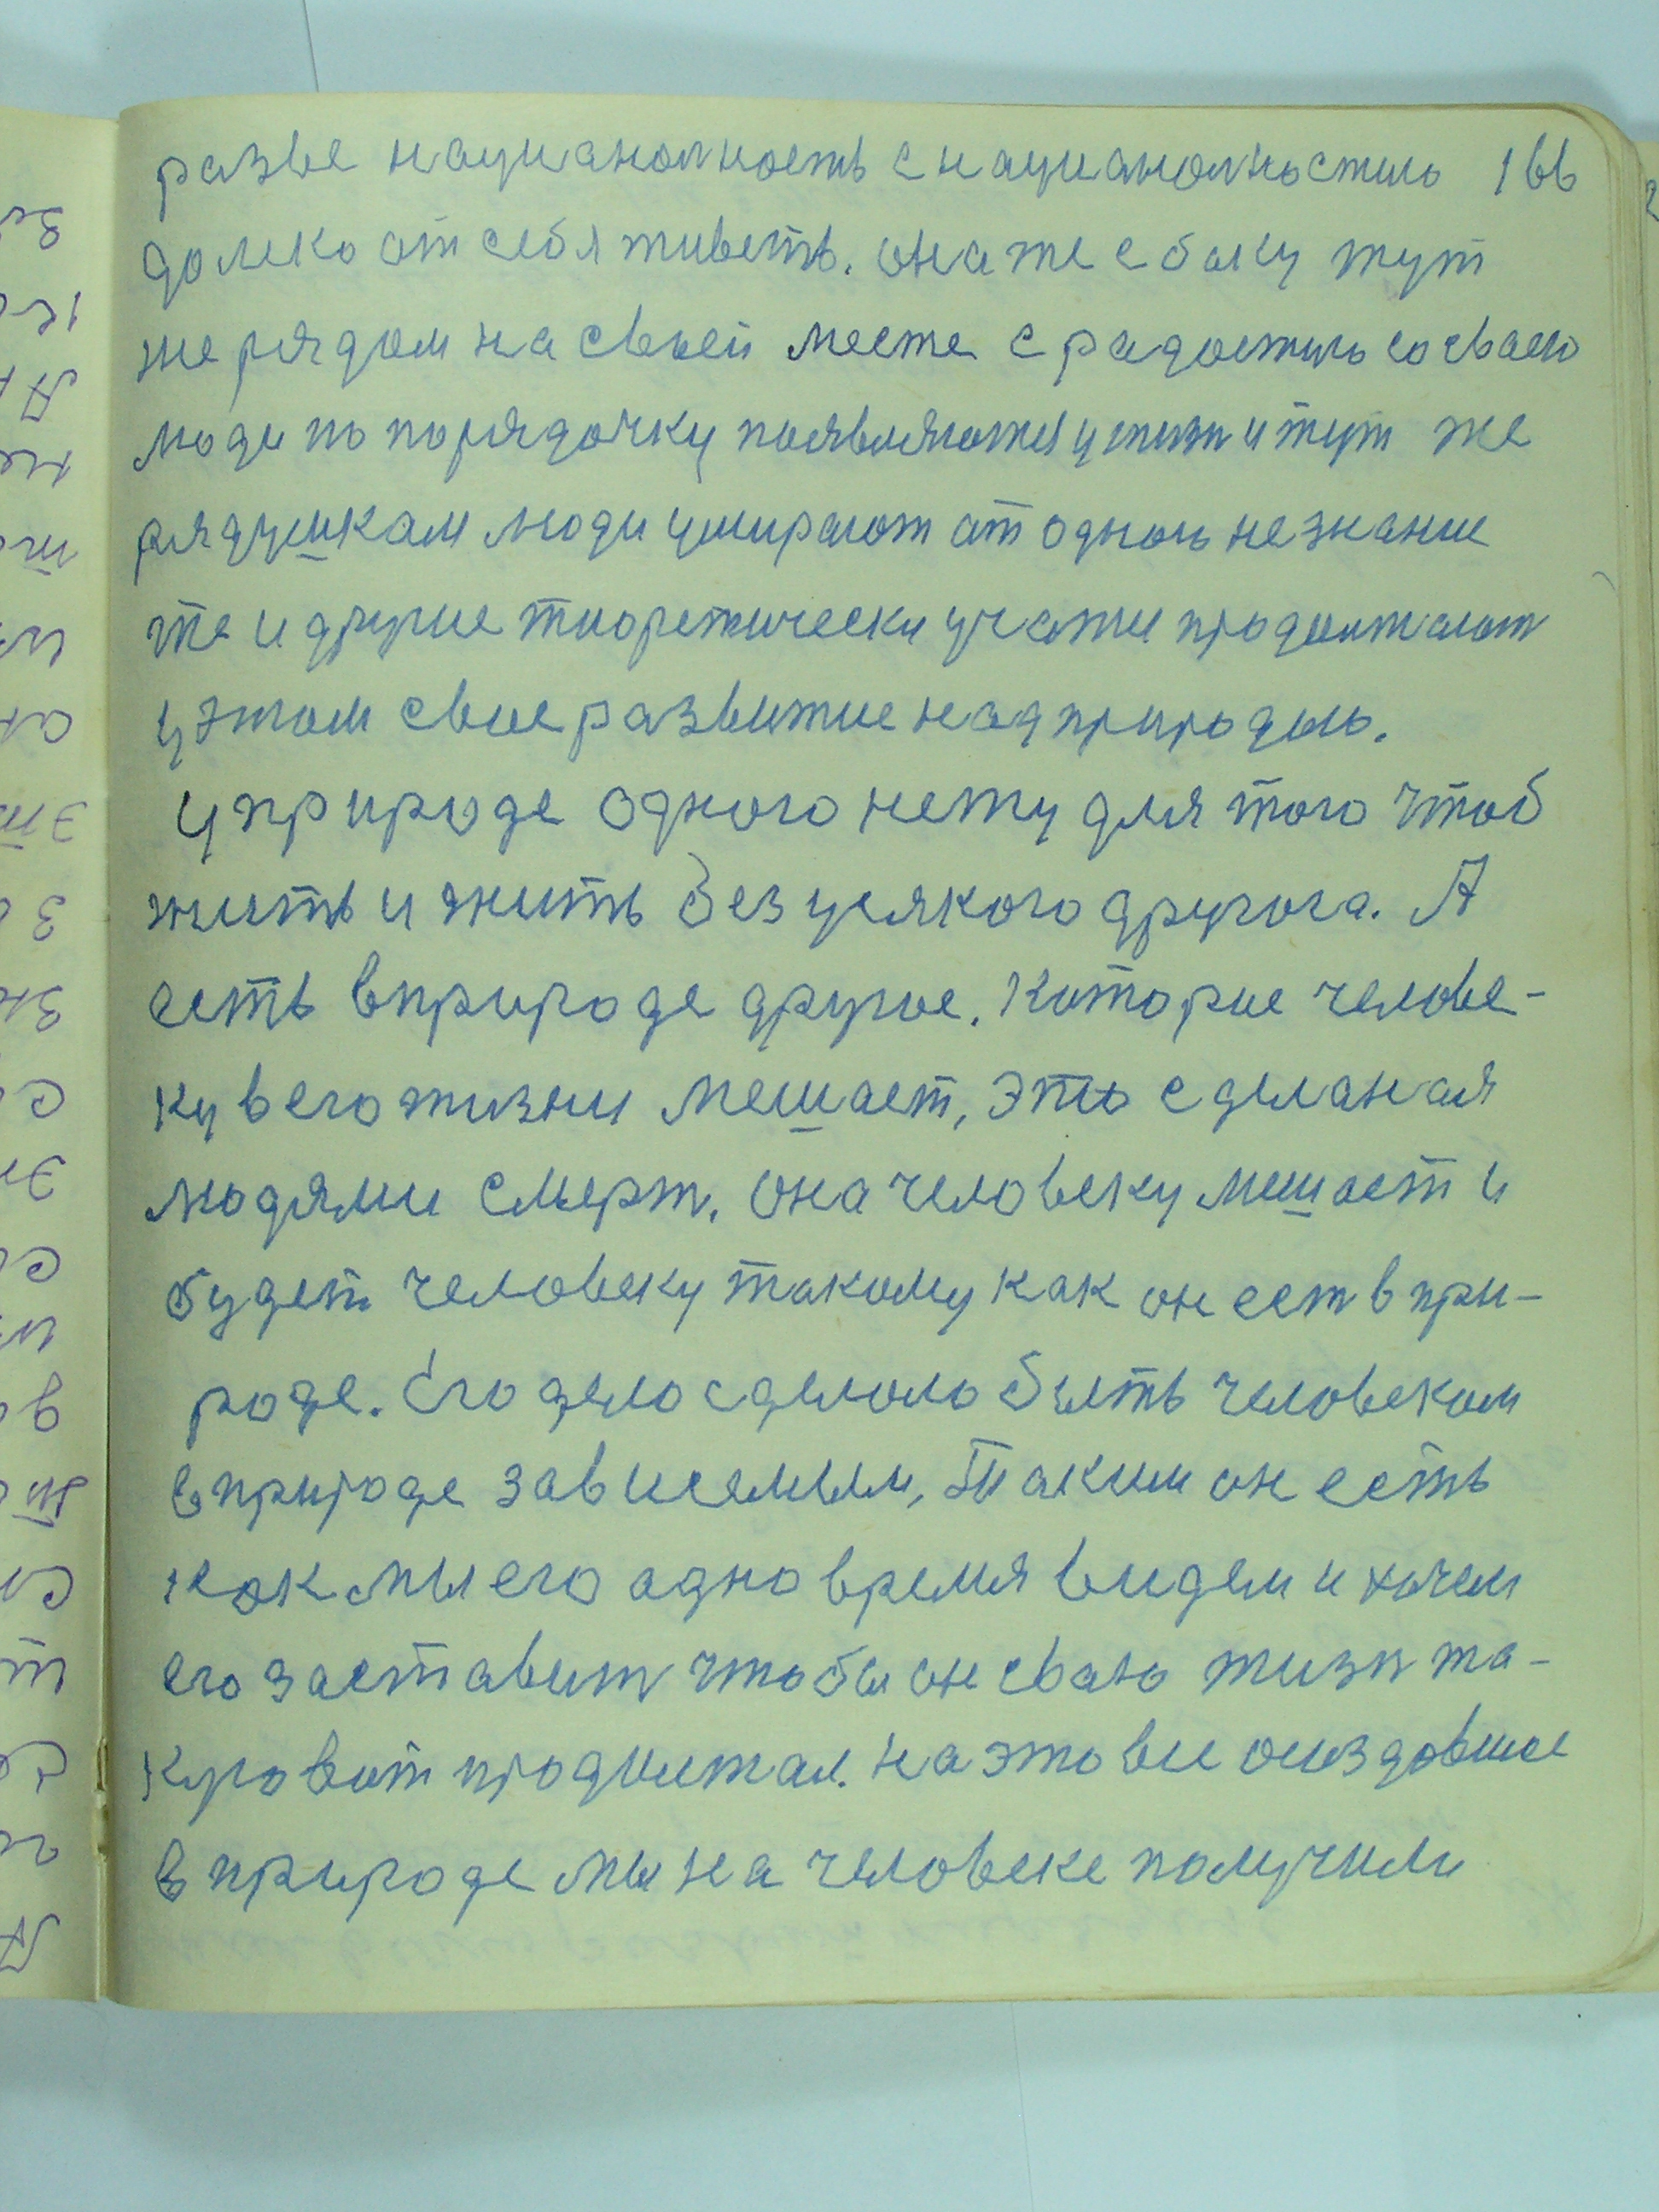 разве национолность с национолностию 166
долеко от себя живеть. она же с боку тут
же рядом на своей месте с радостию со сваею
люди по порядочку появляются у жизн и тут же
рядушкам люди умирают от одною не знание
те и другие тиоретически учатии продолжают
у этом свое развитие над природою.
У природе одного нету для того чтоб
жить и жить без усякого другога. А
есть в природе другое. Которие челове-
ку в его жизни мешает, это сделаная
людями смерт. она человеку мешает и
будет человеку такому как он ест в при-
роде. Его дело сделоло быть человеком
в природе зависемым, Таким он есть
как мы его одно время видем и хочем
его заставит чтобы он сваю жизн та-
куго вот продолжал. На это все создовшое
в природе мы на человеке получили